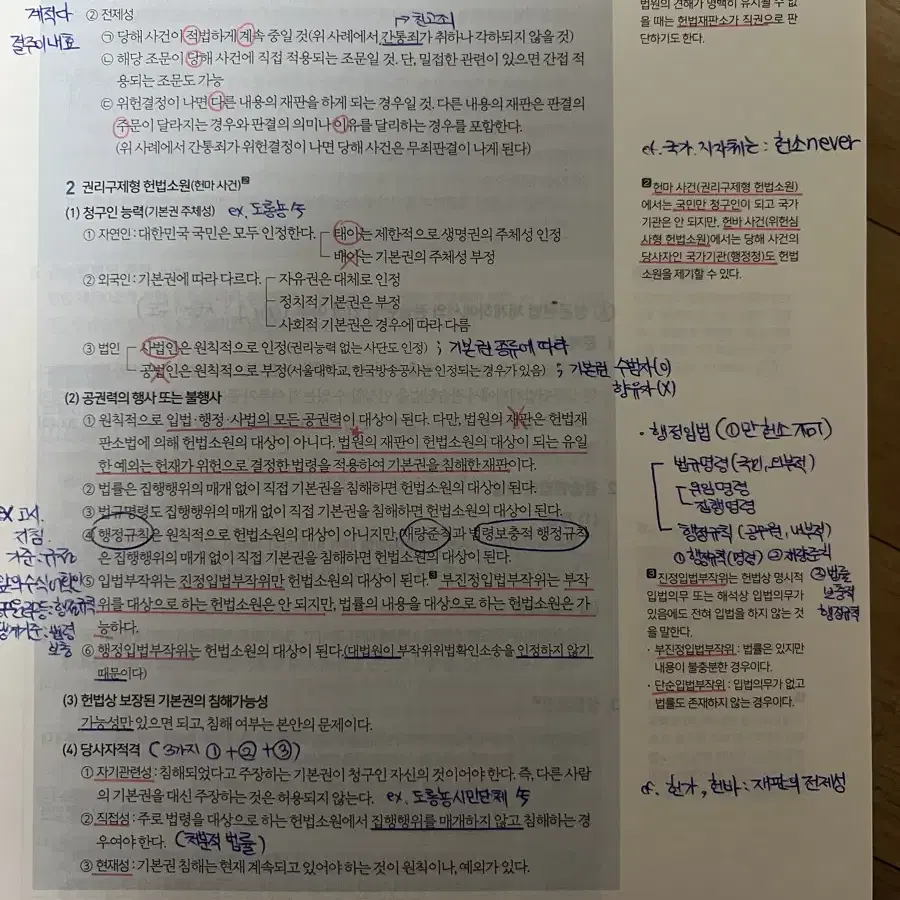 ② 전제성
→ 친고죄
㉠ 당해 사건이 적법하게 계속 중일 것(위 사례에서 간통죄가 취하나 각하되지 않을 것)
㉡ 해당 조문이 당해 사건에 직접 적용되는 조문일 것. 단, 밀접한 관련이 있으면 간접 적
용되는 조문도 가능
㉢ 위헌결정이 나면 다른 내용의 재판을 하게 되는 경우일 것. 다른 내용의 재판은 판결의
주문이 달라지는 경우와 판결의 의미나 이유를 달리하는 경우를 포함한다.
(위 사례에서 간통죄가 위헌결정이 나면 당해 사건은 무죄판결이 나게 된다)
2 권리구제형 헌법소원(헌마 사건)2
(1) 청구인 능력(기본권 주체성) ex. 도롱뇽 속
① 자연인 : 대한민국 국민은 모두 인정한다. 태아는 제한적으로 생명권의 주체성 인정
배아는 기본권의 주체성 부정
② 외국인 : 기본권에 따라 다르다. 자유권은 대체로 인정
정치적 기본권은 부정
사회적 기본권은 경우에 따라 다름
③ 법인 사법인은 원칙적으로 인정(권리능력 없는 사단도 인정) ; 기본권 종류에 따라
공법인은 원칙적으로 부정(서울대학교, 한국방송공사는 인정되는 경우가 있음) ; 기본권 수범자(O)
향유자(X)
(2) 공권력의 행사 또는 불행사
① 원칙적으로 입법·행정·사법의 모든 공권력이 대상이 된다. 다만, 법원의 재판은 헌법재
판소법에 의해 헌법소원의 대상이 아니다. 법원의 재판이 헌법소원의 대상이 되는 유일
한 예외는 헌재가 위헌으로 결정한 법령을 적용하여 기본권을 침해한 재판이다.
② 법률은 집행행위의 매개 없이 직접 기본권을 침해하면 헌법소원의 대상이 된다.
③ 법규명령도 집행행위의 매개 없이 직접 기본권을 침해하면 헌법소원의 대상이 된다.
④ 행정규칙은 원칙적으로 헌법소원의 대상이 아니지만, 재량준칙과 법령보충적 행정규칙
은 집행행위의 매개 없이 직접 기본권을 침해하면 헌법소원의 대상이 된다.
⑤ 입법부작위는 진정입법부작위만 헌법소원의 대상이 된다.3 부진정입법부작위는 부작
위를 대상으로 하는 헌법소원은 안 되지만, 법률의 내용을 대상으로 하는 헌법소원은 가
능하다.
⑥ 행정입법부작위는 헌법소원의 대상이 된다.(대법원이 부작위위법확인소송을 인정하지 않기
때문이다)
(3) 헌법상 보장된 기본권의 침해가능성
가능성만 있으면 되고, 침해 여부는 본안의 문제이다.
(4) 당사자적격 (3가지 ①+②+③)
① 자기관련성 : 침해되었다고 주장하는 기본권이 청구인 자신의 것이어야 한다. 즉, 다른 사람
의 기본권을 대신 주장하는 것은 허용되지 않는다. ex. 도롱뇽시민단체 속
② 직접성 : 주로 법령을 대상으로 하는 헌법소원에서 집행행위를 매개하지 않고 침해하는 경
우여야 한다. (처분적 법률)
③ 현재성 : 기본권 침해는 현재 계속되고 있어야 하는 것이 원칙이나, 예외가 있다.
ex 고시
지침
보충
법원의 견해가 명백이 유지될 수 없
을 때는 헌법재판소가 직권으로 판
단하기도 한다.
cf. 국가. 지자체는 : 헌소 never
2 헌마 사건(권리구제형 헌법소원)
에서는 국민만 청구인이 되고 국가
기관은 안 되지만, 헌바 사건(위헌심
사형 헌법소원)에서는 당해 사건의
당사자인 국가기관(행정청)도 헌법
소원을 제기할 수 있다.
· 행정입법 (①만 헌소 가능)
법규명령 (국민, 외부적)
위임명령
집행명령
행정규칙 (공무원, 내부적)
① 행정규칙(명령) ② 재량준칙
③ 법률
보충적
행정규칙
3 진정입법부작위는 헌법상 명시적
입법의무 또는 해석상 입법의무가
있음에도 전혀 입법을 하지 않는 것
을 말한다.
· 부진정입법부작위 : 법률은 있지만
내용이 불충분한 경우이다.
· 단순입법부작위 : 입법의무가 없고
법률도 존재하지 않는 경우이다.
cf. 헌가, 헌바 : 재판의 전제성